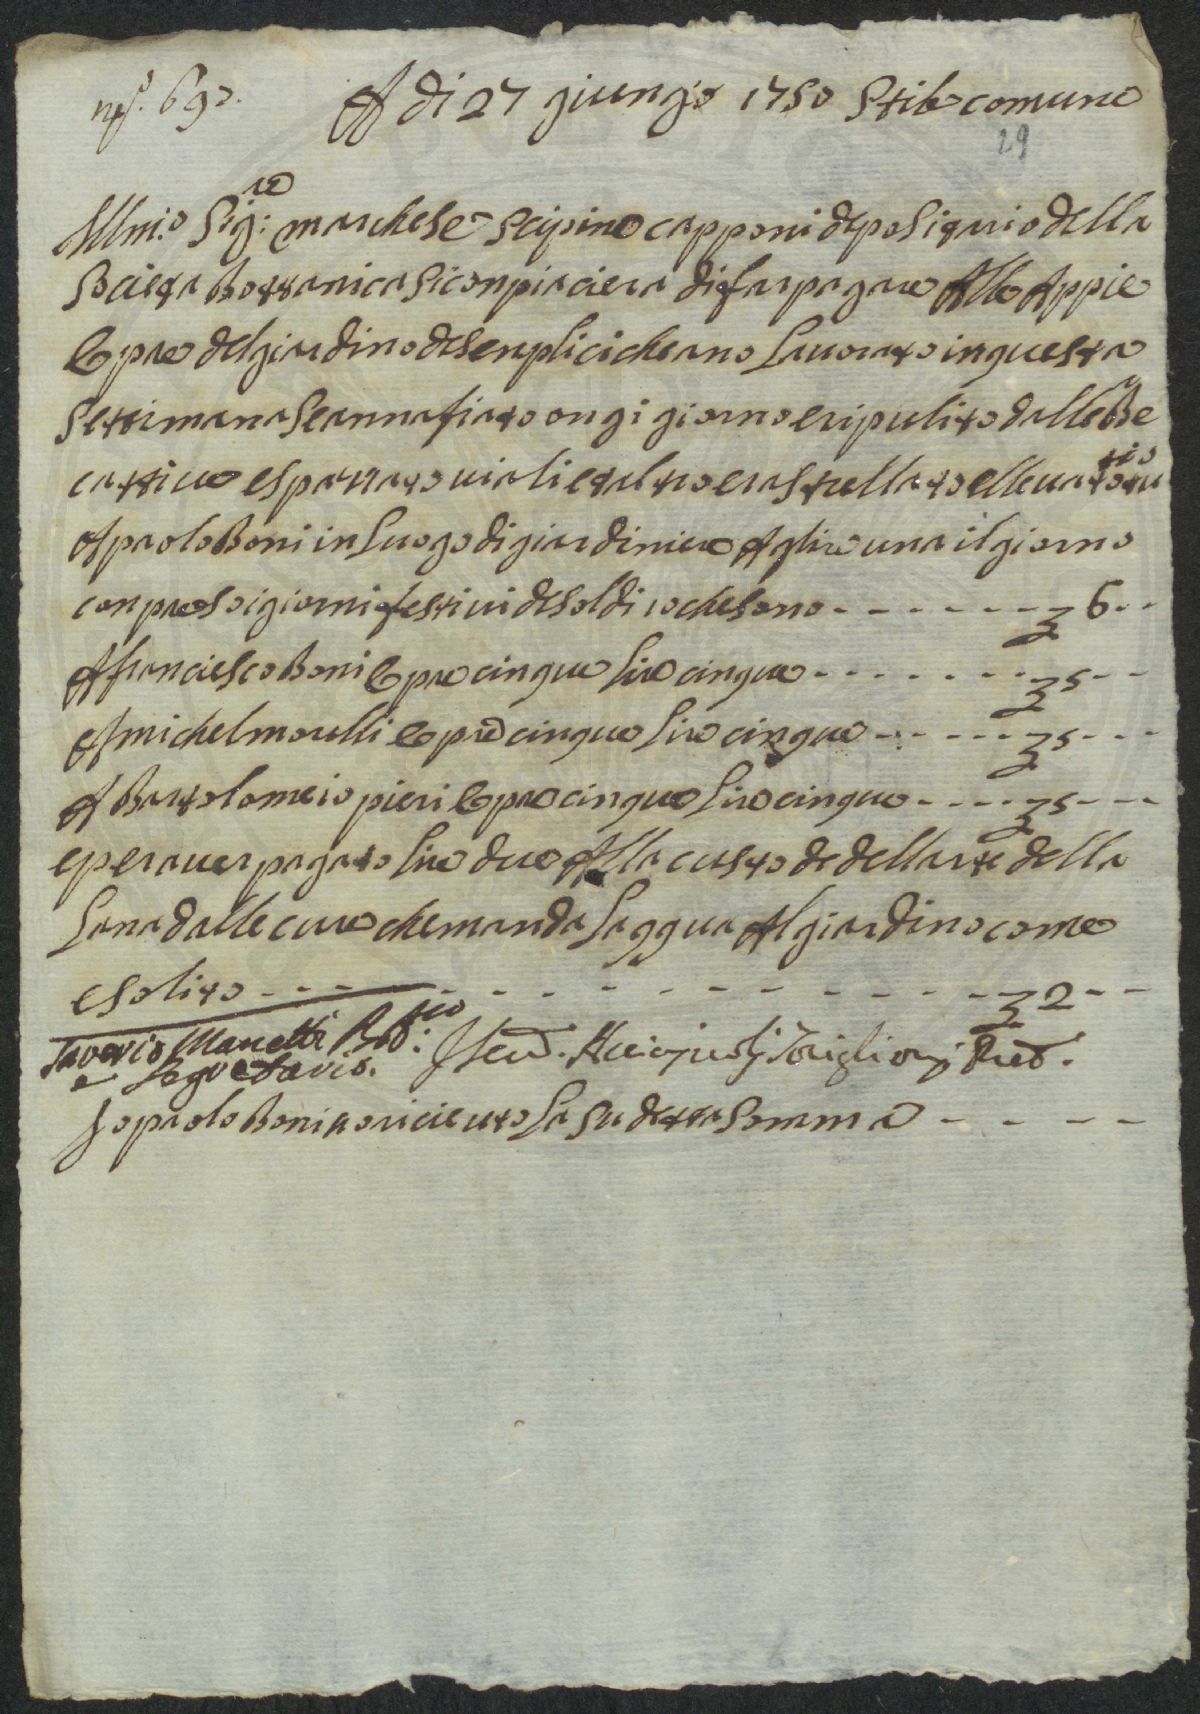 A di 27 giungo 1750 Stile comune
29
Illmo Sig:re marchese Scipino capponi depositario della
Societa Bottanica Si conpiaciera di far pagare Alle Appie
Opre del giardino de senplici che ano Lavorato in questa
Settimana Se annafiato ongi giorno e ripulito dalle
cattive e spazzato viali e taltro e rastrellato e llevato
A paolo Boni in Luogo di giardiniere A lire una il giorno
conpreso i giorni festivi de soldi 10 che sono - - - - - - - £ 6 - -
A franciesco Boni Opre cinque Lire cinque - - - - - - - £ 5 - -
A michel morelli Opre cinque Lire cinque - - - - - £ 5 - - -
A Bartolomeio pieri Opre cinque Lire cinque - - - - £ 5 - - -
e per aver pagato Lire due Alla custode dellarte della
Lana dalle cure che manda Laqqua Al giardino come
e solito - - - - - - - - - - - - - £ 2 - -
Saverio Manetti
e Segretario.
Io paolo Boni o ricieuto La Su detta Somma - - - -